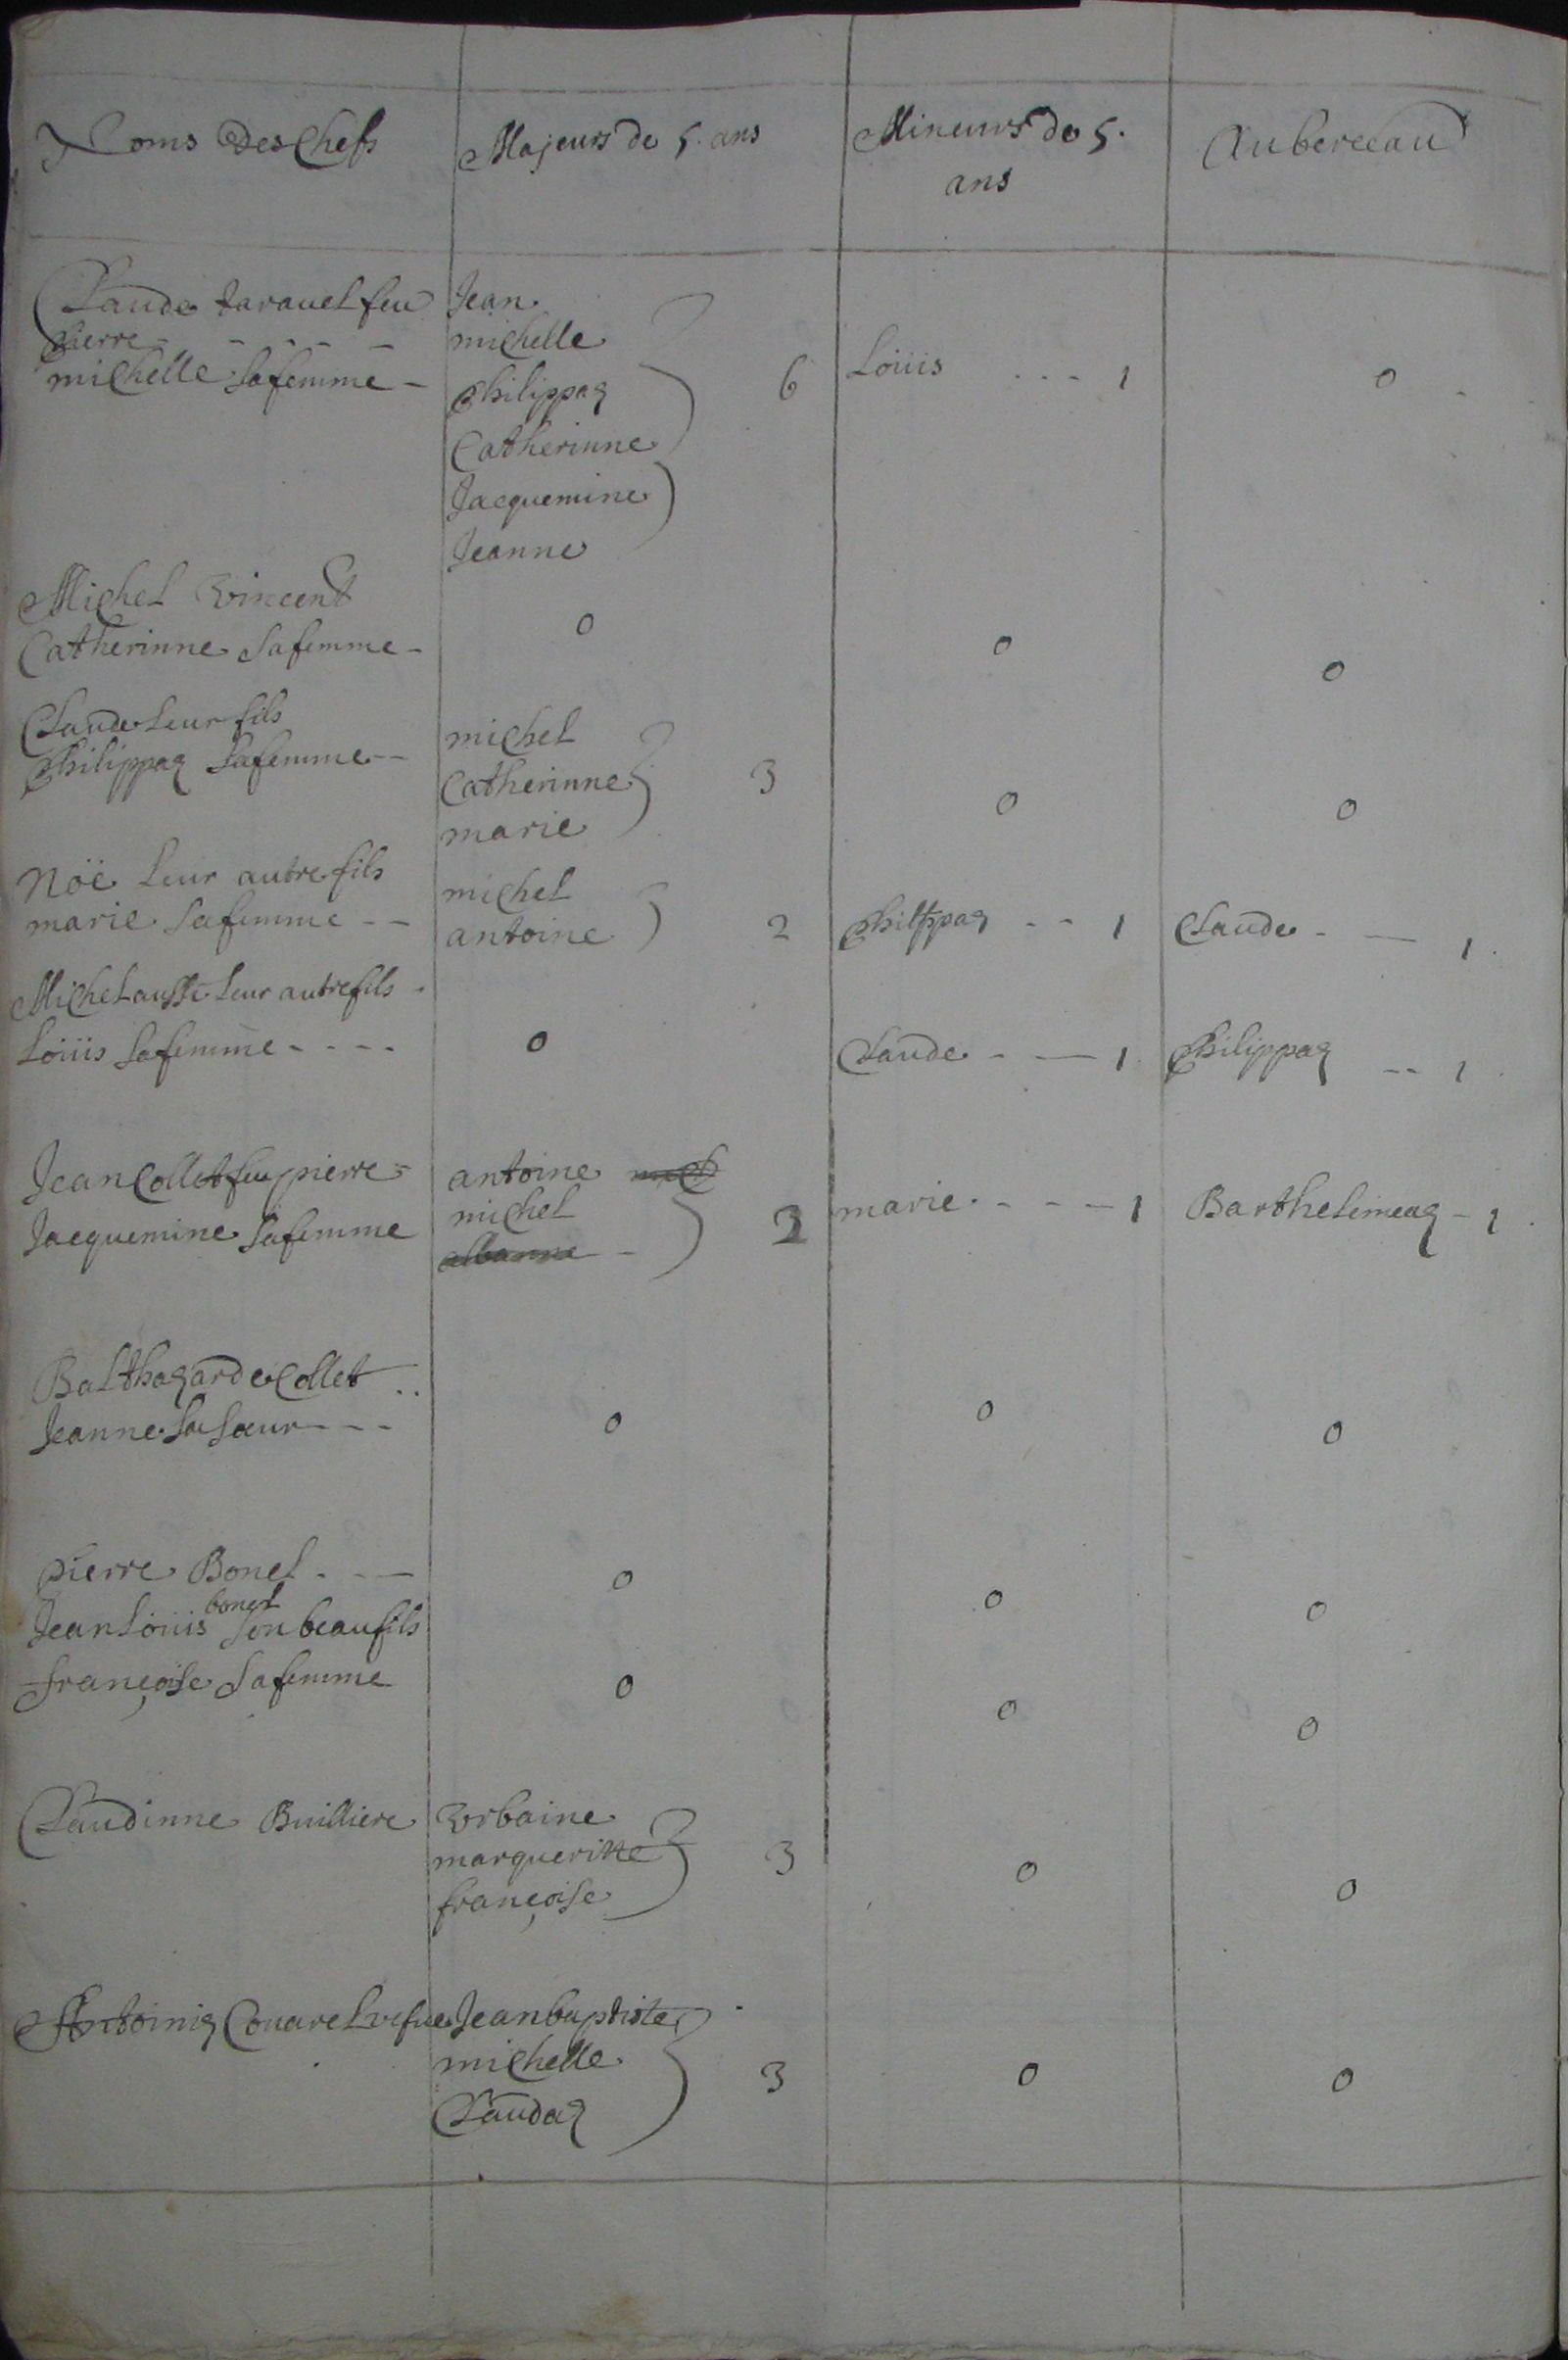 Noms Des Chefs | Majeurs de 5. ans | Mineurs de 5. ans | Au berceau
Claude taravel feu | Jean
pierre - - - - - | michelle
michelle sa femme - | philippaz | 6 | Loüis - - - 1 | 0
Catherinne
Jacquemine
Jeanne
Michel Vincent
Catherinne sa femme - | 0 | 0 | 0
Claude leur fils | michel
philippaz sa femme -- | Catherinne | 3 | 0 | 0
marie
Nöé leur autre fils | michel
marie sa femme -- | antoine | 2 | philippaz -- 1 | Claude - — 1
Michel aussi leur autre fils -
Loüis sa femme - - - - | 0 | Claude - — 1 | philippaz -- 1
Jean Collet feu pierre - | antoine
Jacquemine sa femme | michel | 2 | marie - - - 1 | Barthelimeaz - 1
Balthazarde Collet ..
Jeanne sa soeur - - - | 0 | 0 | 0
pierre Bonel - - — | 0 | 0 | 0
bonel
Jean Loüis son beaufils
françoise sa femme | 0 | 0 | 0
Claudinne Builliere | Vrbaine
margueritte | 3 | 0 | 0
françoise
Antoinaz Couarel vefue | Jean baptiste
michelle | 3 | 0 | 0
Claudaz